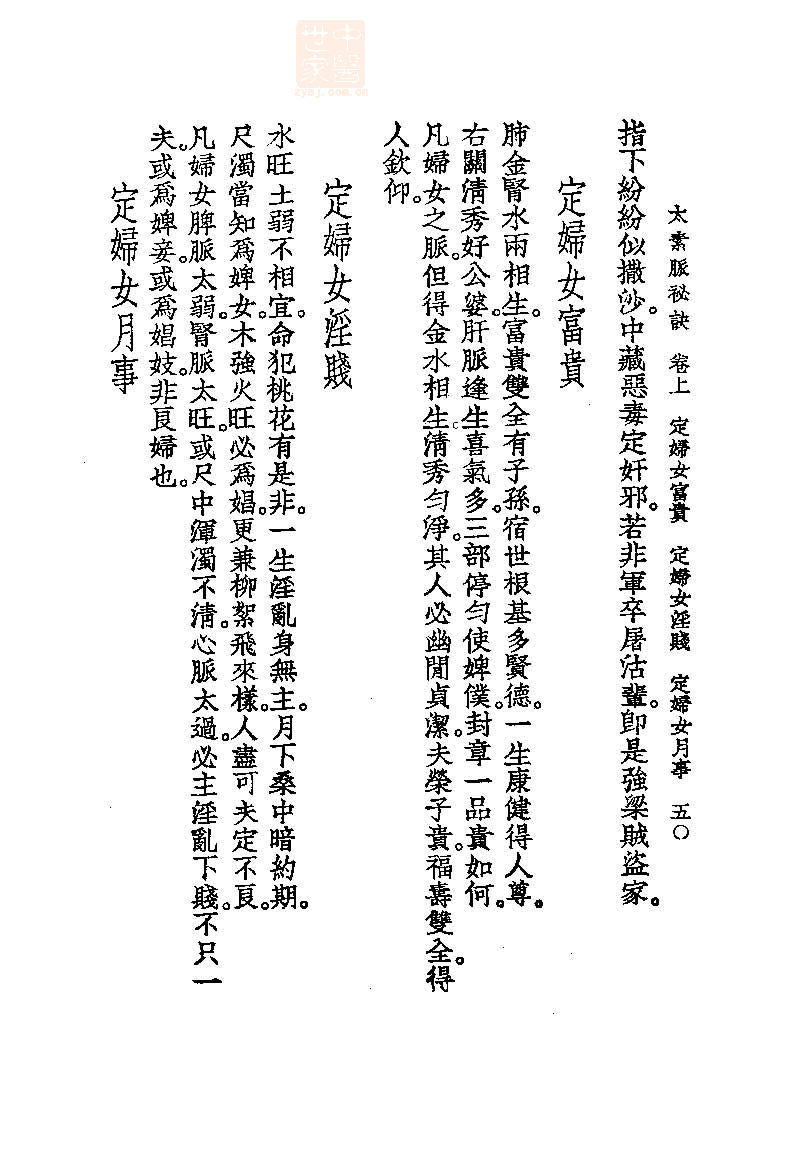 中醫
世家
zysj.com.cn
太素脈祕訣 卷上 定婦女富貴 定婦女淫賤 定婦女月事 五〇
指下紛紛似撒沙。中藏惡毒定奸邪。若非軍卒屠沽輩。即是強梁賊盜家。
定婦女富貴
肺金腎水兩相生。富貴雙全有子孫。宿世根基多賢德。一生康健得人尊。
右關清秀好公婆。肝脈逢生喜氣多。三部停勻使婢僕。封章一品貴如何。
凡婦女之脈。但得金水相生。清秀勻淨。其人必幽閒貞潔。夫榮子貴。福壽雙全。得
人欽仰。
定婦女淫賤
水旺土弱不相宜。命犯桃花有是非。一生淫亂身無主。月下桑中暗約期。
尺濁當知爲婢女。木強火旺必爲娼。更兼柳絮飛來樣。人盡可夫定不良。
凡婦女脾脈太弱。腎脈太旺。或尺中渾濁不清。心脈太過。必主淫亂下賤。不只一
夫。或爲婢妾。或爲娼妓。非良婦也。
定婦女月事